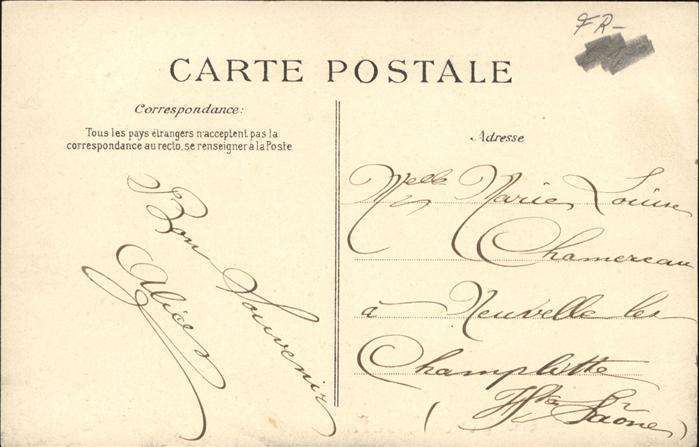 FR-
CARTE POSTALE
Correspondance:
Tous les pays étrangers n'acceptent pas la
correspondance au recto, se renseigner à la Poste
Bon Souvenir
Alice
Adresse
Melle Marie Louise
Chamereau
à Neuvelle les
Champlitte
(Hte Saône)